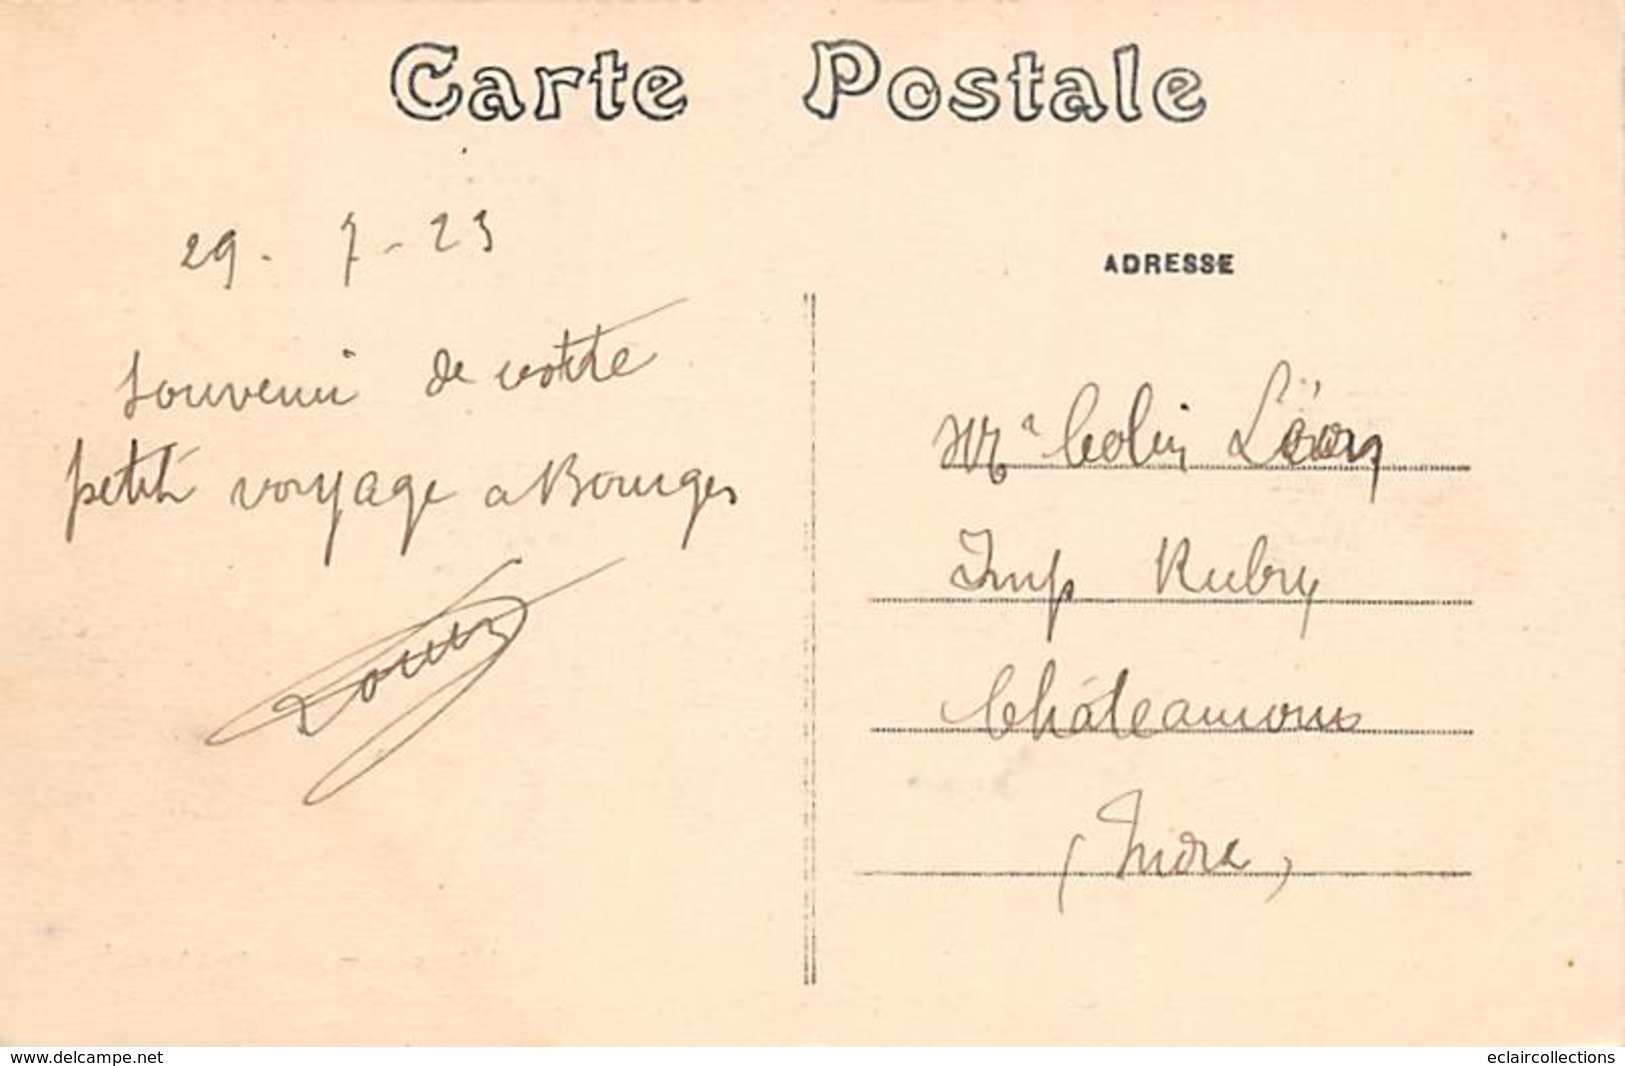 Carte Postale
29 - 7 - 23
souvenir de votre
petit voyage a Bourges
Louis
ADRESSE
Mr Colin Léon
Imp Rubry
Châteauroux
(Indre)
www.delcampe.net
eclaircollections